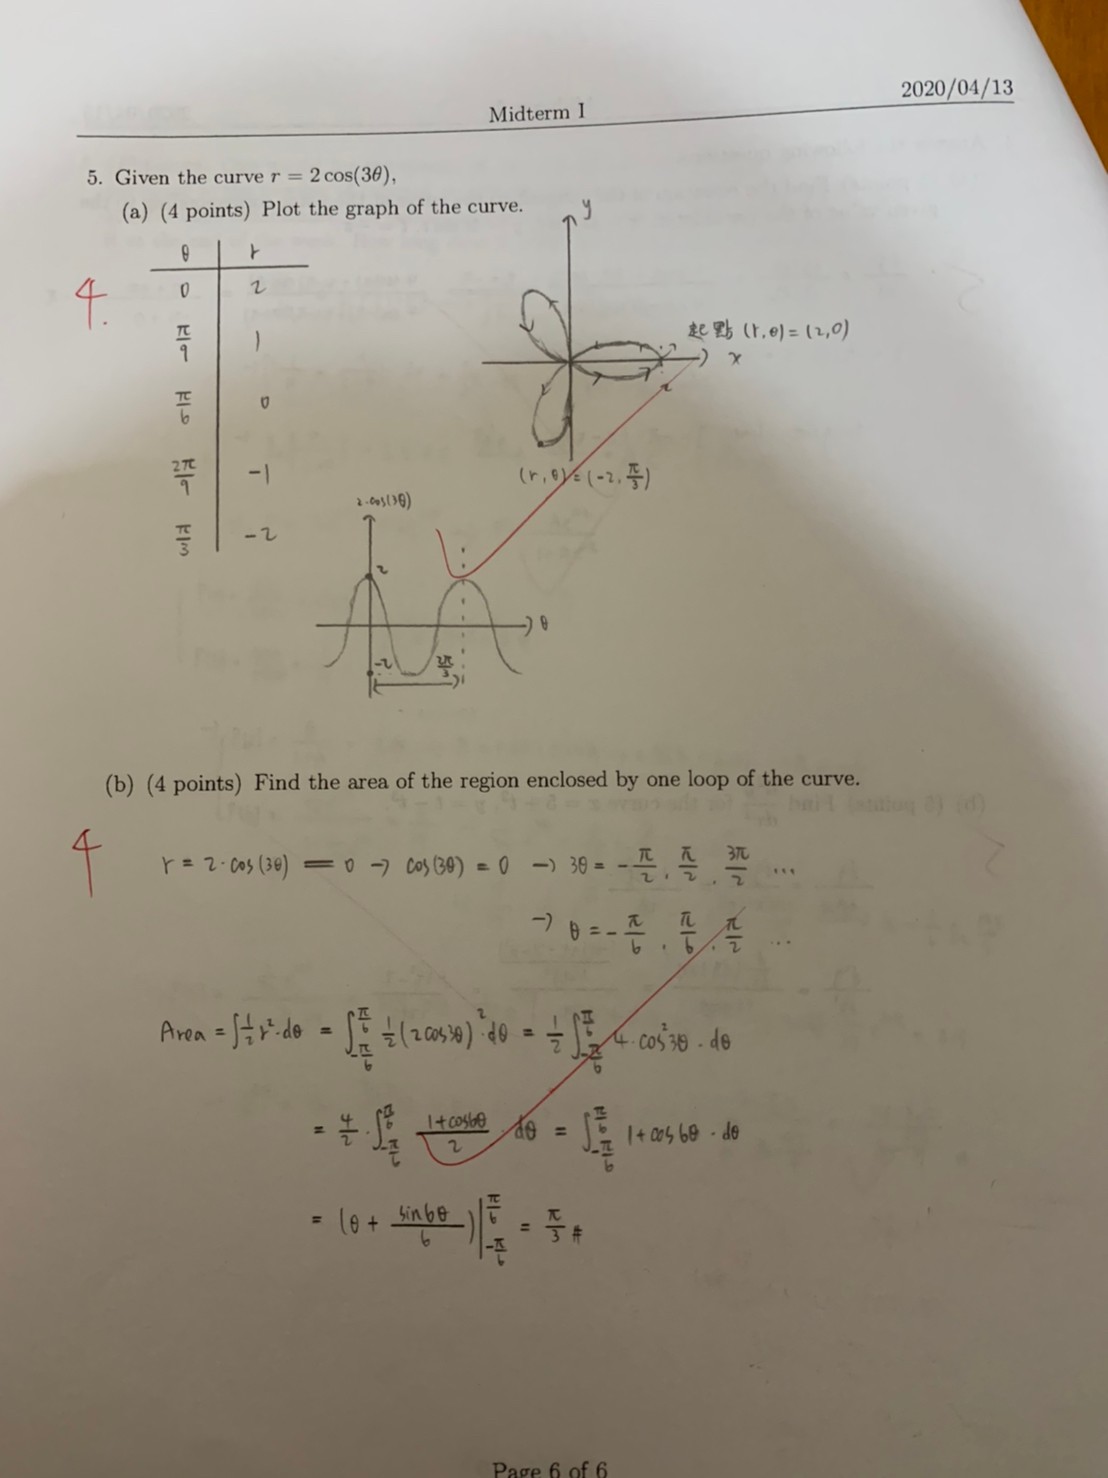 2020/04/13
Midterm I
5. Given the curve r = 2 cos(3θ),
(a) (4 points) Plot the graph of the curve.
y
θ r
4.
0 2
π/9 1
起點 (r,θ)=(2,0)
x
π/6 0
2π/9 -1
(r,θ)=(-2, π/3)
2·cos(3θ)
π/3 -2
2
θ
-2
2π/3
(b) (4 points) Find the area of the region enclosed by one loop of the curve.
4
r = 2·cos(3θ) = 0 → cos(3θ) = 0 → 3θ = -π/2, π/2, 3π/2 ...
→ θ = -π/6, π/6, π/2 ...
Area = ∫ 1/2 r²·dθ = ∫_{-π/6}^{π/6} 1/2 (2cos3θ)²·dθ = 1/2 ∫_{-π/6}^{π/6} 4·cos²3θ·dθ
= 4/2 · ∫_{-π/6}^{π/6} (1+cos6θ)/2 · dθ = ∫_{-π/6}^{π/6} 1+cos6θ·dθ
= (θ + sin6θ/6)|_{-π/6}^{π/6} = π/3 #
Page 6 of 6